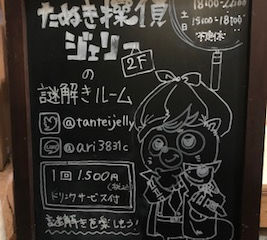 たぬき探偵
ジェリー
2F
の
謎解きルーム
@tanteijelly
@ari3831c
1回 1,500円
(税込)
ドリンクサービス付
謎解きを楽しもう!
18:00-22:00
土
日
不定休